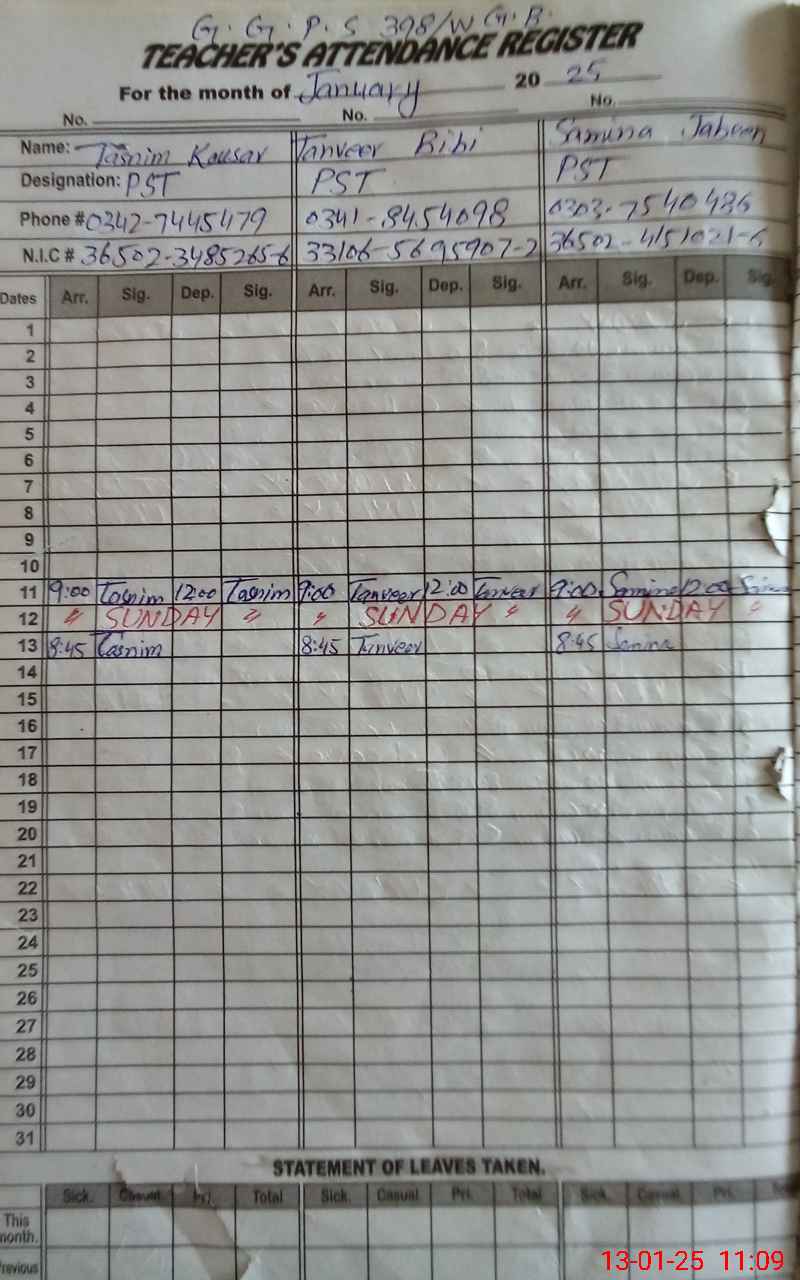 G. G. P. S 398/W G.B.
TEACHER'S ATTENDANCE REGISTER
For the month of January 20 25
No. No. No.
Name: Tasnim Kousar Tanveer Bibi Samina Jabeen
Designation: PST PST PST
Phone # 0342-7445479 0341-8454098 0303-7540486
N.I.C # 36502-3485265-6 33106-5695907-2 36502-4151021-6
Dates Arr. Sig. Dep. Sig. Arr. Sig. Dep. Sig. Arr. Sig. Dep. Sig.
1
2
3
4
5
6
7
8
9
10
11 9:00 Tasnim 12:00 Tasnim 9:00 Tanveer 12:00 Tanveer 9:00 Samina 12:00
12 " SUNDAY " " SUNDAY " " SUNDAY "
13 8:45 Tasnim 8:45 Tanveer 8:45 Samina
14
15
16
17
18
19
20
21
22
23
24
25
26
27
28
29
30
31
STATEMENT OF LEAVES TAKEN.
Sick. Casual Pri. Total Sick. Casual Pri. Total Sick. Casual Pri.
This
month.
Previous
13-01-25 11:09